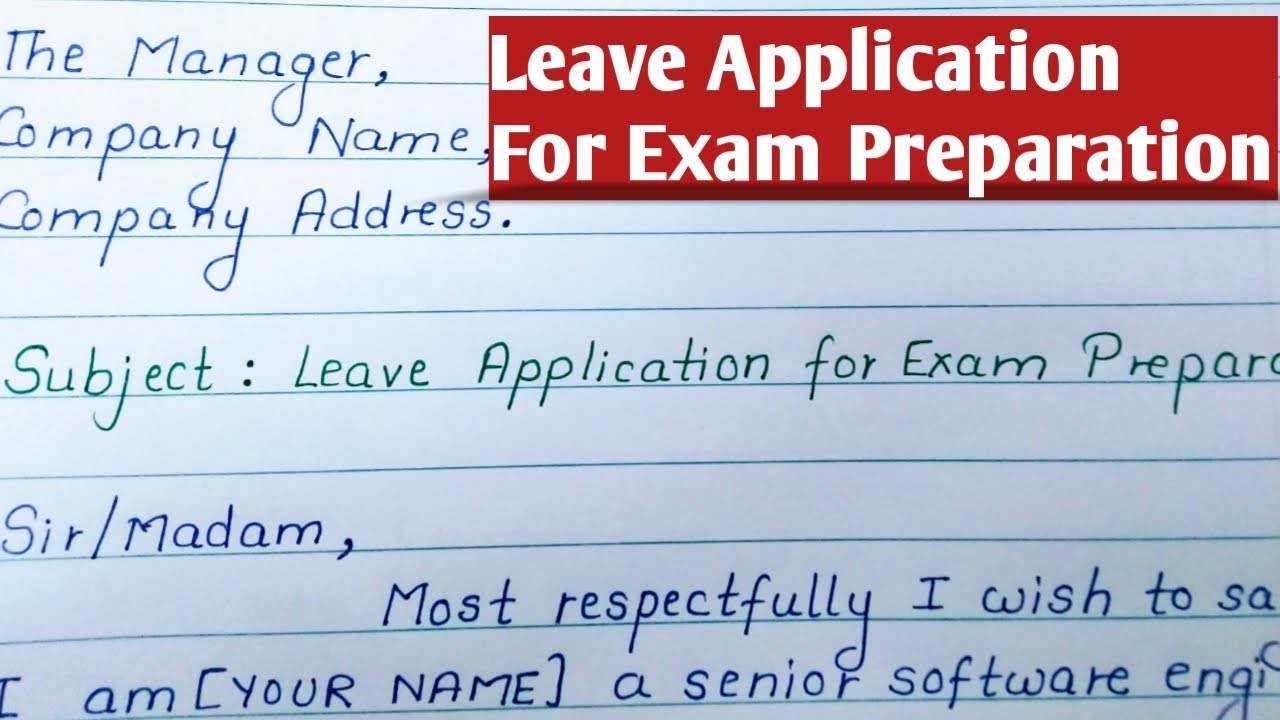 The Manager,
Leave Application
For Exam Preparation
Company Name,
Company Address.
Subject : Leave Application for Exam
Sir/Madam,
Most respectfully I wish to
I am [YOUR NAME] a senior software